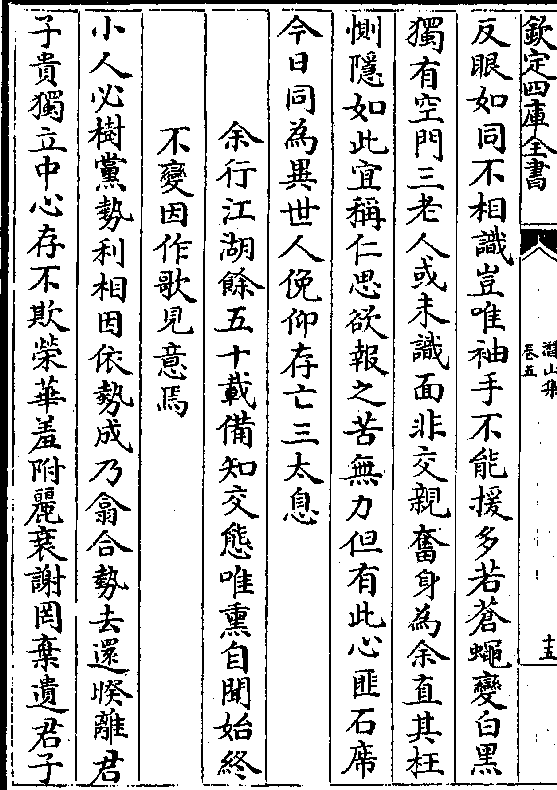 欽定四庫全書
潛山集
卷五
十五
反眼如同不相識豈唯袖手不能援多若蒼蠅變白黑
獨有空門三老人或未識面非交親奮身為余直其枉
惻隱如此宜稱仁思欲報之苦無力但有此心匪石席
今日同為異世人俛仰存亡三太息
余行江湖餘五十載備知交態唯熏自聞始終
不變因作歌見意焉
小人必樹黨勢利相因依勢成乃翕合勢去還暌離君
子貴獨立中心存不欺榮華羞附麗衰謝罔棄遺君子